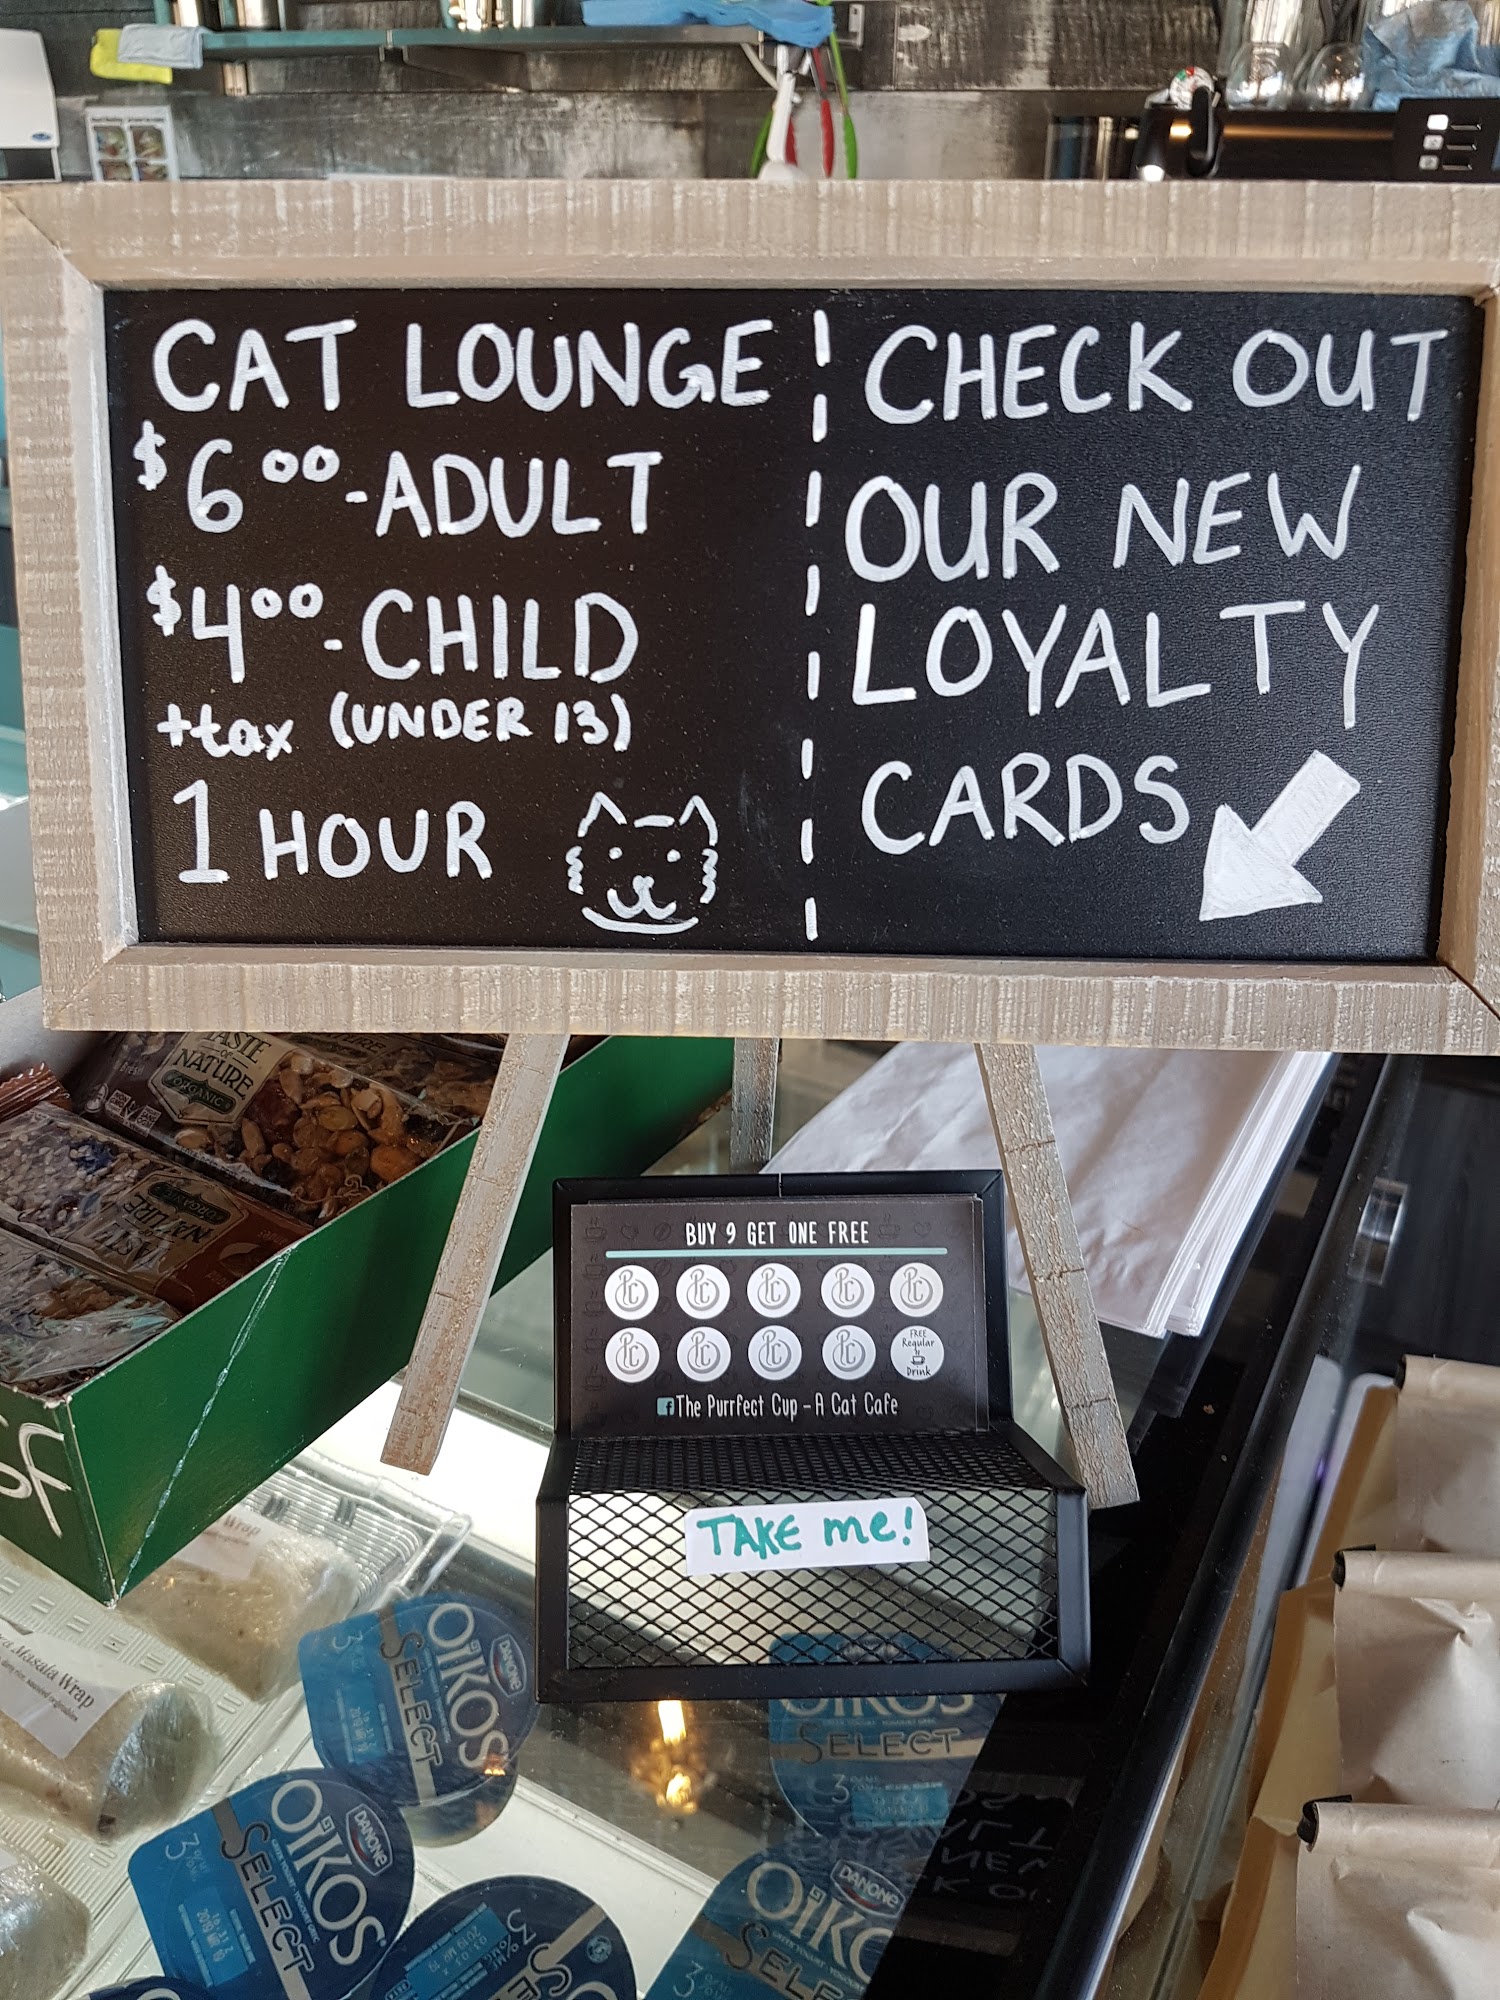 CAT LOUNGE
$6.00 - ADULT
$4.00 - CHILD
+tax (UNDER 13)
1 HOUR
CHECK OUT
OUR NEW
LOYALTY
CARDS
TASTE
OF
NATURE
ORGANIC
BUY 9 GET ONE FREE
PC PC PC PC PC
PC PC PC PC
FREE
Regular
Drink
The Purrfect Cup - A Cat Cafe
TAKE me!
Wrap
Masala Wrap
DANONE
OIKOS
SELECT
DANONE
OIKOS
SELECT
OIKOS
SELECT
DANONE
OIKO
SELE